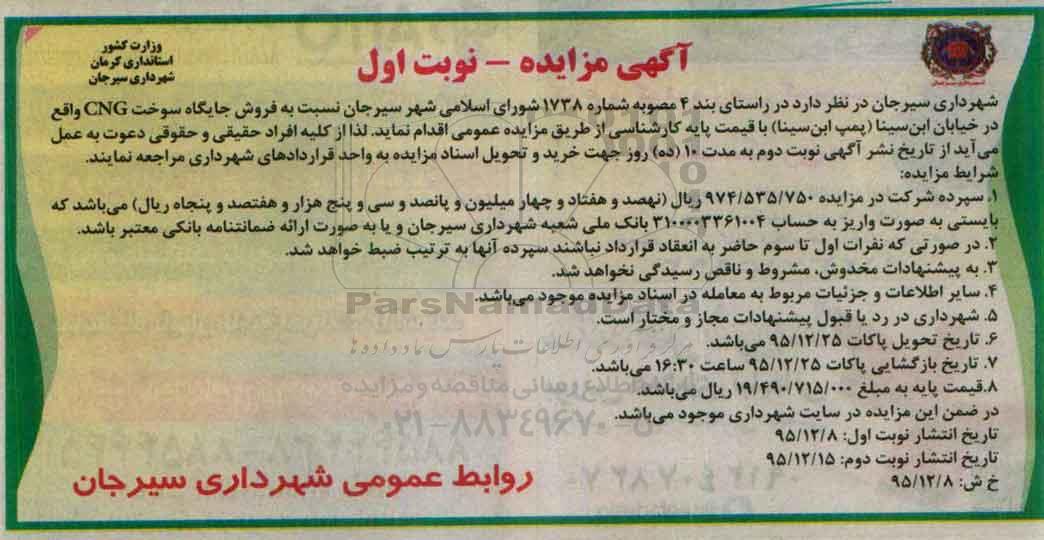 وزارت کشور
استانداری کرمان
شهرداری سیرجان
آگهی مزایده - نوبت اول
شهرداری سیرجان در نظر دارد در راستای بند ۴ مصوبه شماره ۱۷۳۸ شورای اسلامی شهر سیرجان نسبت به فروش جایگاه سوخت CNG واقع
در خیابان ابن‌سینا (پمپ ابن‌سینا) با قیمت پایه کارشناسی از طریق مزایده عمومی اقدام نماید. لذا از کلیه افراد حقیقی و حقوقی دعوت به عمل
می‌آید از تاریخ نشر آگهی نوبت دوم به مدت ۱۰ (ده) روز جهت خرید و تحویل اسناد مزایده به واحد قراردادهای شهرداری مراجعه نمایند.
شرایط مزایده:
۱. سپرده شرکت در مزایده ۹۷۴/۵۳۵/۷۵۰ ریال (نهصد و هفتاد و چهار میلیون و پانصد و سی و پنج هزار و هفتصد و پنجاه ریال) می‌باشد که
بایستی به صورت واریز به حساب ۳۱۰۰۰۰۳۳۶۱۰۰۴ بانک ملی شعبه شهرداری سیرجان و یا به صورت ارائه ضمانتنامه بانکی معتبر باشد.
۲. در صورتی که نفرات اول تا سوم حاضر به انعقاد قرارداد نباشند سپرده آنها به ترتیب ضبط خواهد شد.
۳. به پیشنهادات مخدوش، مشروط و ناقص رسیدگی نخواهد شد.
۴. سایر اطلاعات و جزئیات مربوط به معامله در اسناد مزایده موجود می‌باشد.
۵. شهرداری در رد یا قبول پیشنهادات مجاز و مختار است.
۶. تاریخ تحویل پاکات ۹۵/۱۲/۲۵ می‌باشد.
۷. تاریخ بازگشایی پاکات ۹۵/۱۲/۲۵ ساعت ۱۶:۳۰ می‌باشد.
۸.قیمت پایه به مبلغ ۱۹/۴۹۰/۷۱۵/۰۰۰ ریال می‌باشد.
در ضمن این مزایده در سایت شهرداری موجود می‌باشد.
تاریخ انتشار نوبت اول: ۹۵/۱۲/۸
تاریخ انتشار نوبت دوم: ۹۵/۱۲/۱۵
خ ش: ۹۵/۱۲/۸
روابط عمومی شهرداری سیرجان
ParsNamadData
۰۲۱-۸۸۳۴۹۶۷۰-۵